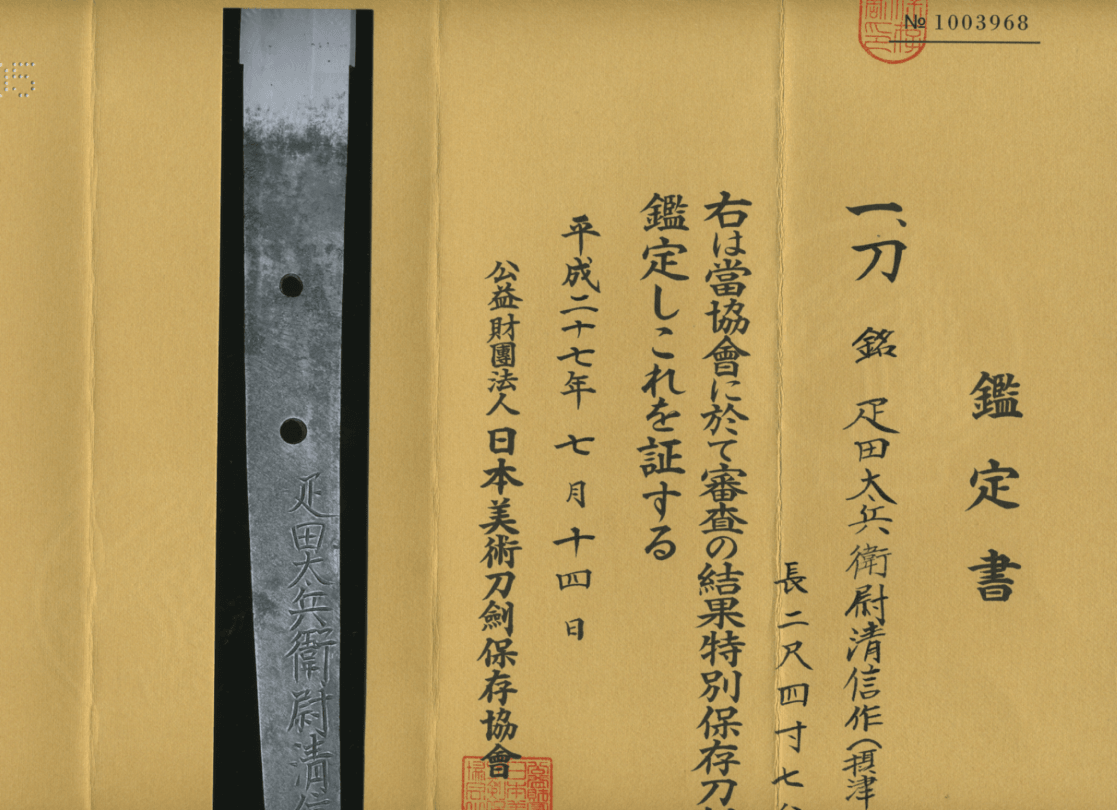 № 1003968
鑑定書
一、刀 銘 疋田太兵衛尉清信作(摂津
長二尺四寸七分
右は當協會に於て審査の結果特別保存刀
鑑定しこれを証する
平成二十七年 七月十四日
公益財團法人 日本美術刀劍保存協會
疋田太兵衛尉清信